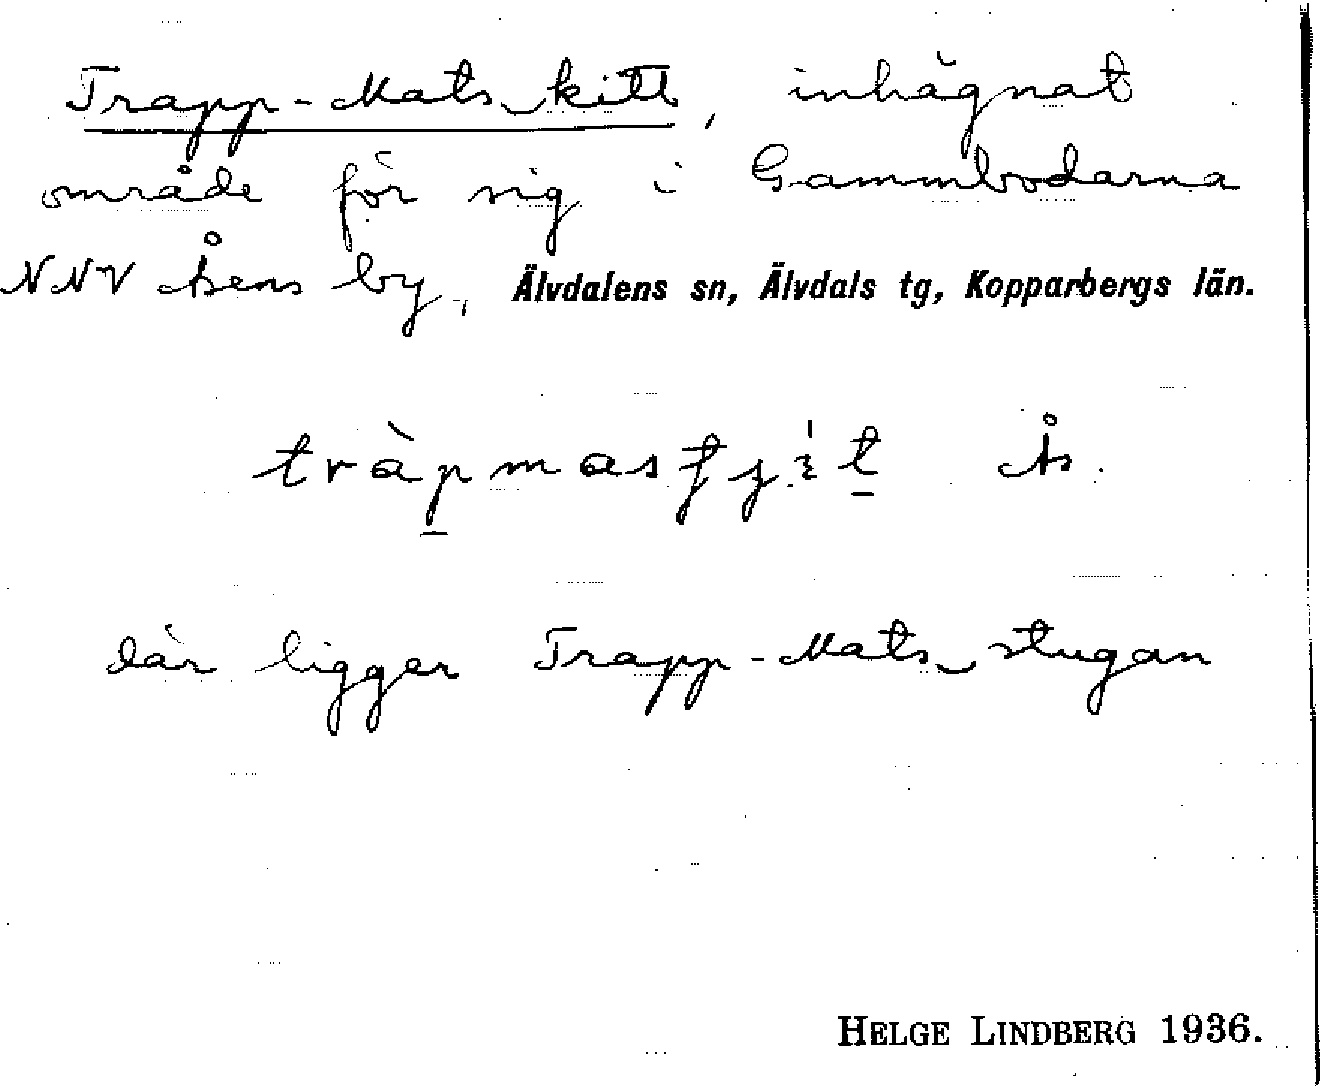 Trapp-Mats kitt, inhägnat
område för sig i Gammbodarna
NNV Åsens by, Älvdalens sn, Älvdals tg, Kopparbergs län.
Ås.
där ligger Trapp-Mats stugan
HELGE LINDBERG 1936.